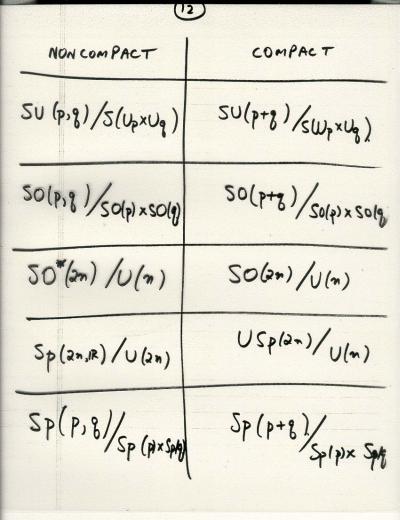 12
NONCOMPACT COMPACT
SU(p,q)/S(Up×Uq) SU(p+q)/S(Up×Uq)
SO(p,q)/SO(p)×SO(q) SO(p+q)/SO(p)×SO(q
SO*(2n)/U(n) SO(2n)/U(n)
Sp(2n,R)/U(2n) USp(2n)/U(n)
Sp(p,q)/Sp(p)×Sp(q) Sp(p+q)/Sp(p)×Sp(q